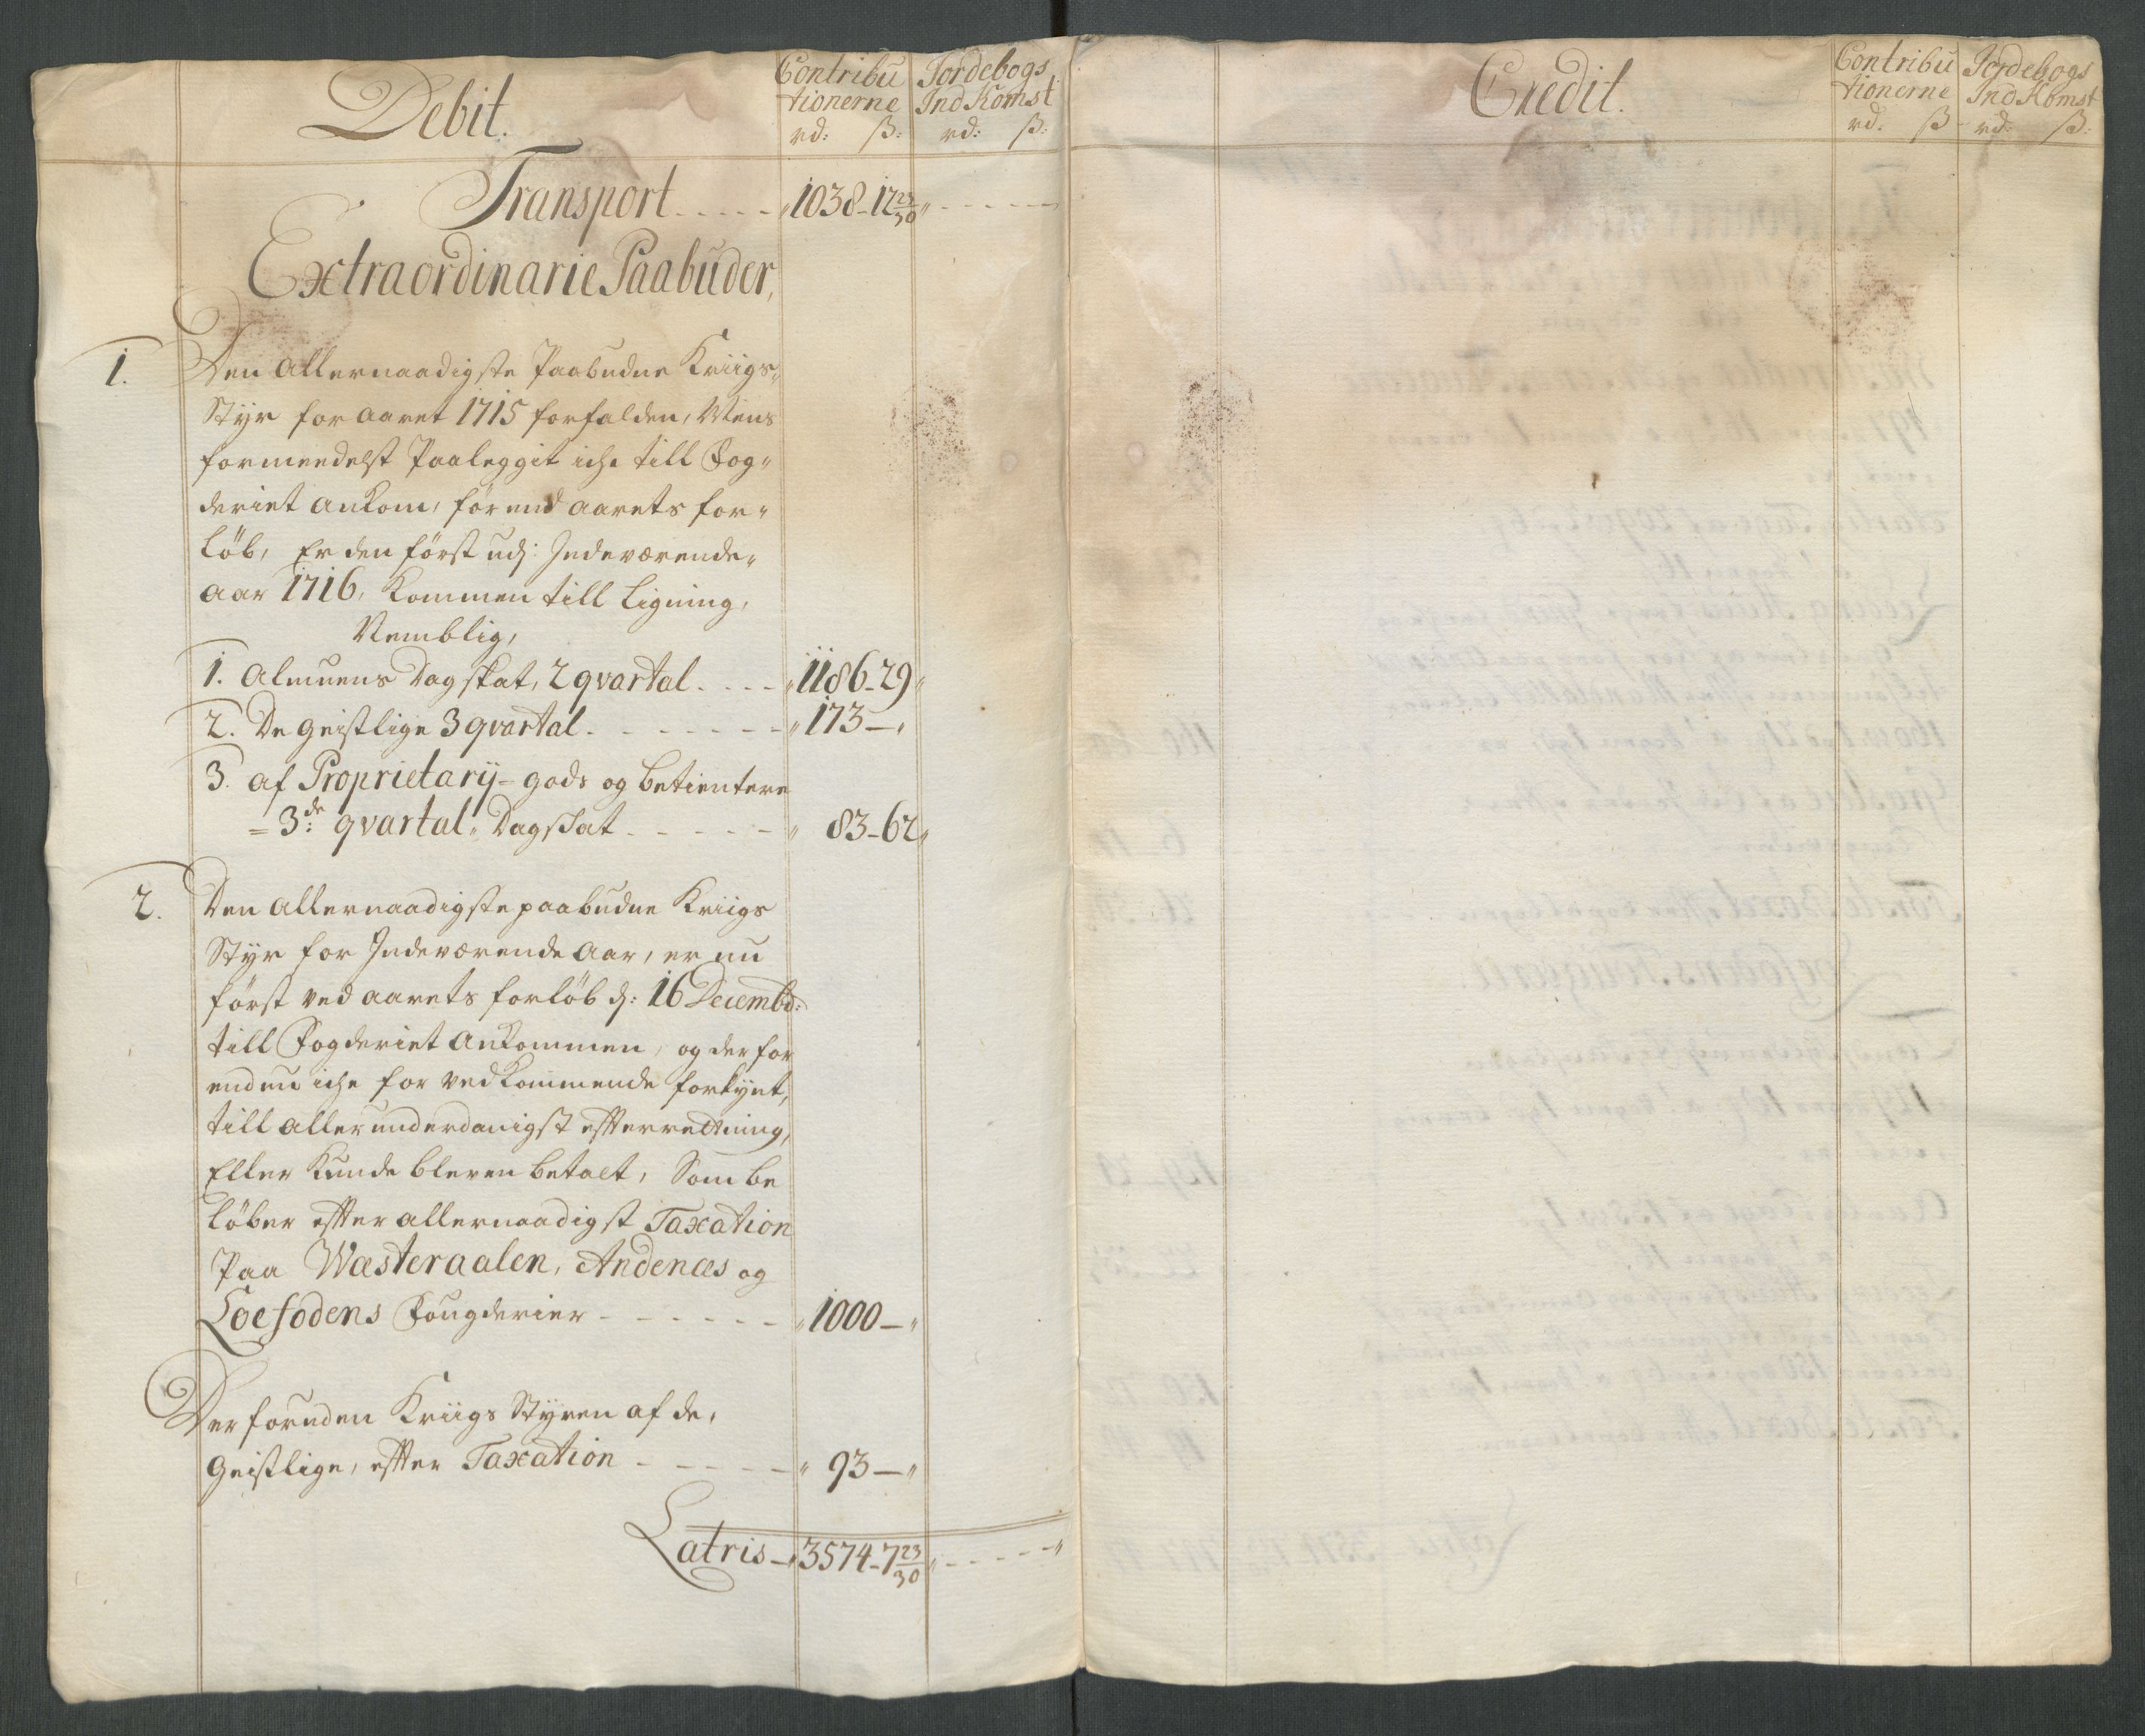 Debit.
Contribu
tionerne
rd: ß:
Jordebogs
Ind Komst
rd: ß:
Transport - - - - - 1038 - 12 23/30
Extraordinarie Paabuder,
1. Den allernaadigste Paabudne Kriigs„
Styr for aaret 1715 forfalden, Mens
formeedelst Paaleggit iche till Fog„
deriet ankom, för end aarets for„
löb, Er den först udj: Indeværende„
aar 1716, Kommen till Ligning,
Nemblig,
1. Almuens Dagskat, 2 qvartal - - - - 1186 - 29
2. De geistlige 3 qvartal - - - - - - - 173 - „
3. af Proprietarij - gods og betientere
= 3de: qvartal„ Dagskat - - - - - 83 - 62
2. Den allernaadigste paabudne Kriigs
Styr for Indeværende aar, er nu
först ved aarets forlöb d: 16 Decembr:
till Fogderiet ankommen, og der for
endnu iche for vedkommende forkynt,
till allerunderdanigst effterretning,
Eller Kunde bleven betalt, Som be
löber effter allernaadigst Taxation
Paa Wæsteraalen, Andenæs og
Loefodens Fougderier - - - - - - 1000 - „
Der foruden Kriigs Styren af de,
geistlige, effter Taxation - - - - - 93 - „
Latris - 3574 - 7 23/30
Credit.
Contribu
tionerne
rd: ß
Jordebogs
Ind Komst
rd: ß: